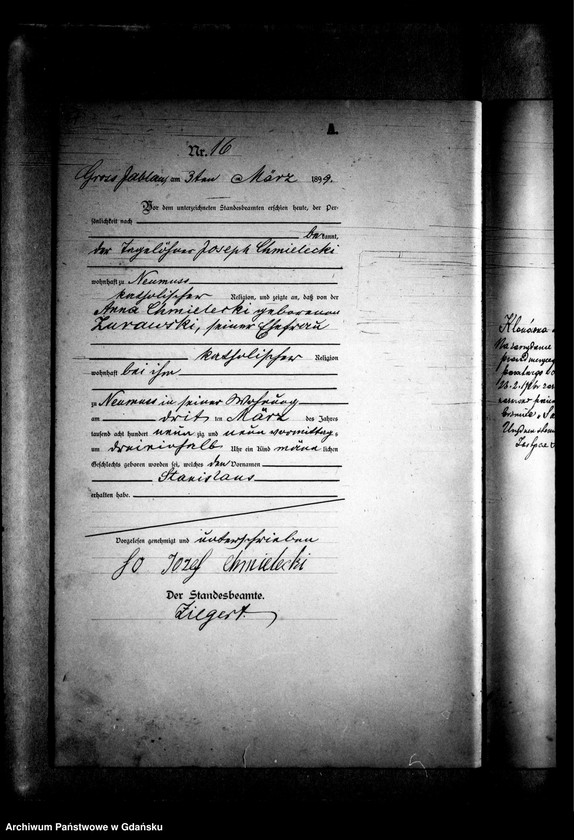 A.
Nr. 16
Gross Jablau am 3ten März 1899.
Vor dem unterzeichneten Standesbeamten erschien heute, der Per-
sönlichkeit nach
bekannt,
der Tagelöhner Joseph Chmielecki
wohnhaft zu Neumuss
katholischer Religion, und zeigte an, daß von der
Anna Chmielecki geborenen
Zurawski, seiner Ehefrau
katholischer Religion
wohnhaft bei ihm
zu Neumuss in seiner Wohnung
am drit ten März des Jahres
tausend acht hundert neun zig und neun vormittags
um drei Uhr ein Kind männlichen
Geschlechts geboren worden sei, welches den Vornamen
Stanislaus
erhalten habe.
Vorgelesen genehmigt und unterschrieben
Jozef Chmielecki
Der Standesbeamte.
Ziegert.
Archiwum Państwowe w Gdańsku